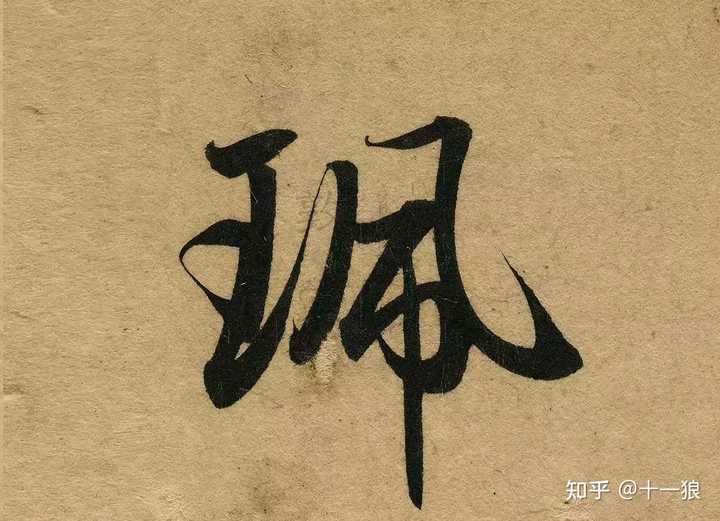 珮
知乎 @十一狼